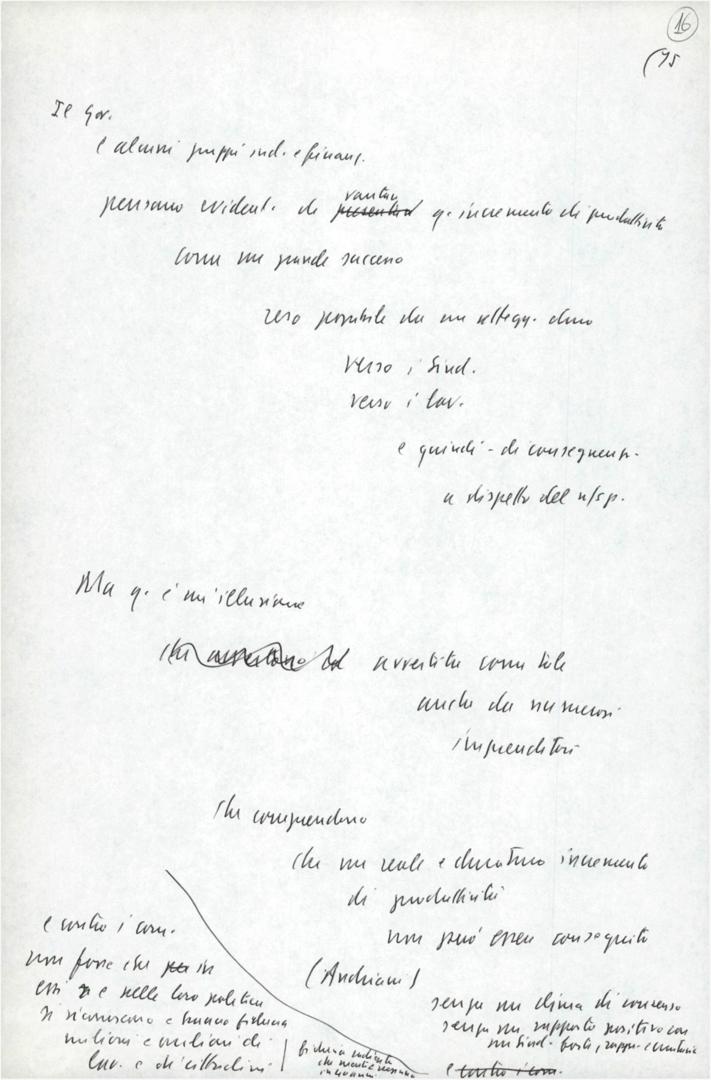 16
(45
Il Gov.
e alcuni gruppi ind. e finanz.
pensano evident. di presentare vantare q. incremento di produttività
come un grande successo
reso possibile da un attegg. duro
verso i Sind.
verso i lav.
e quindi - di conseguenza -
a dispetto del n/sp.
Ma q. è un'illusione
che avvertono avvertita come tale
anche da numerosi
imprenditori
che comprendono
che un reale e duraturo incremento
di produttività
non può essere conseguito
(Andriani)
senza un clima di consenso
senza un rapporto positivo con
un Sind. forte, rappr. e unitario
e contro i com.
e contro i com.
non fosse che per in
essi e nella loro politica
si riconoscono e hanno fiducia
milioni e milioni di
lav. e di cittadini
fiducia
che
in